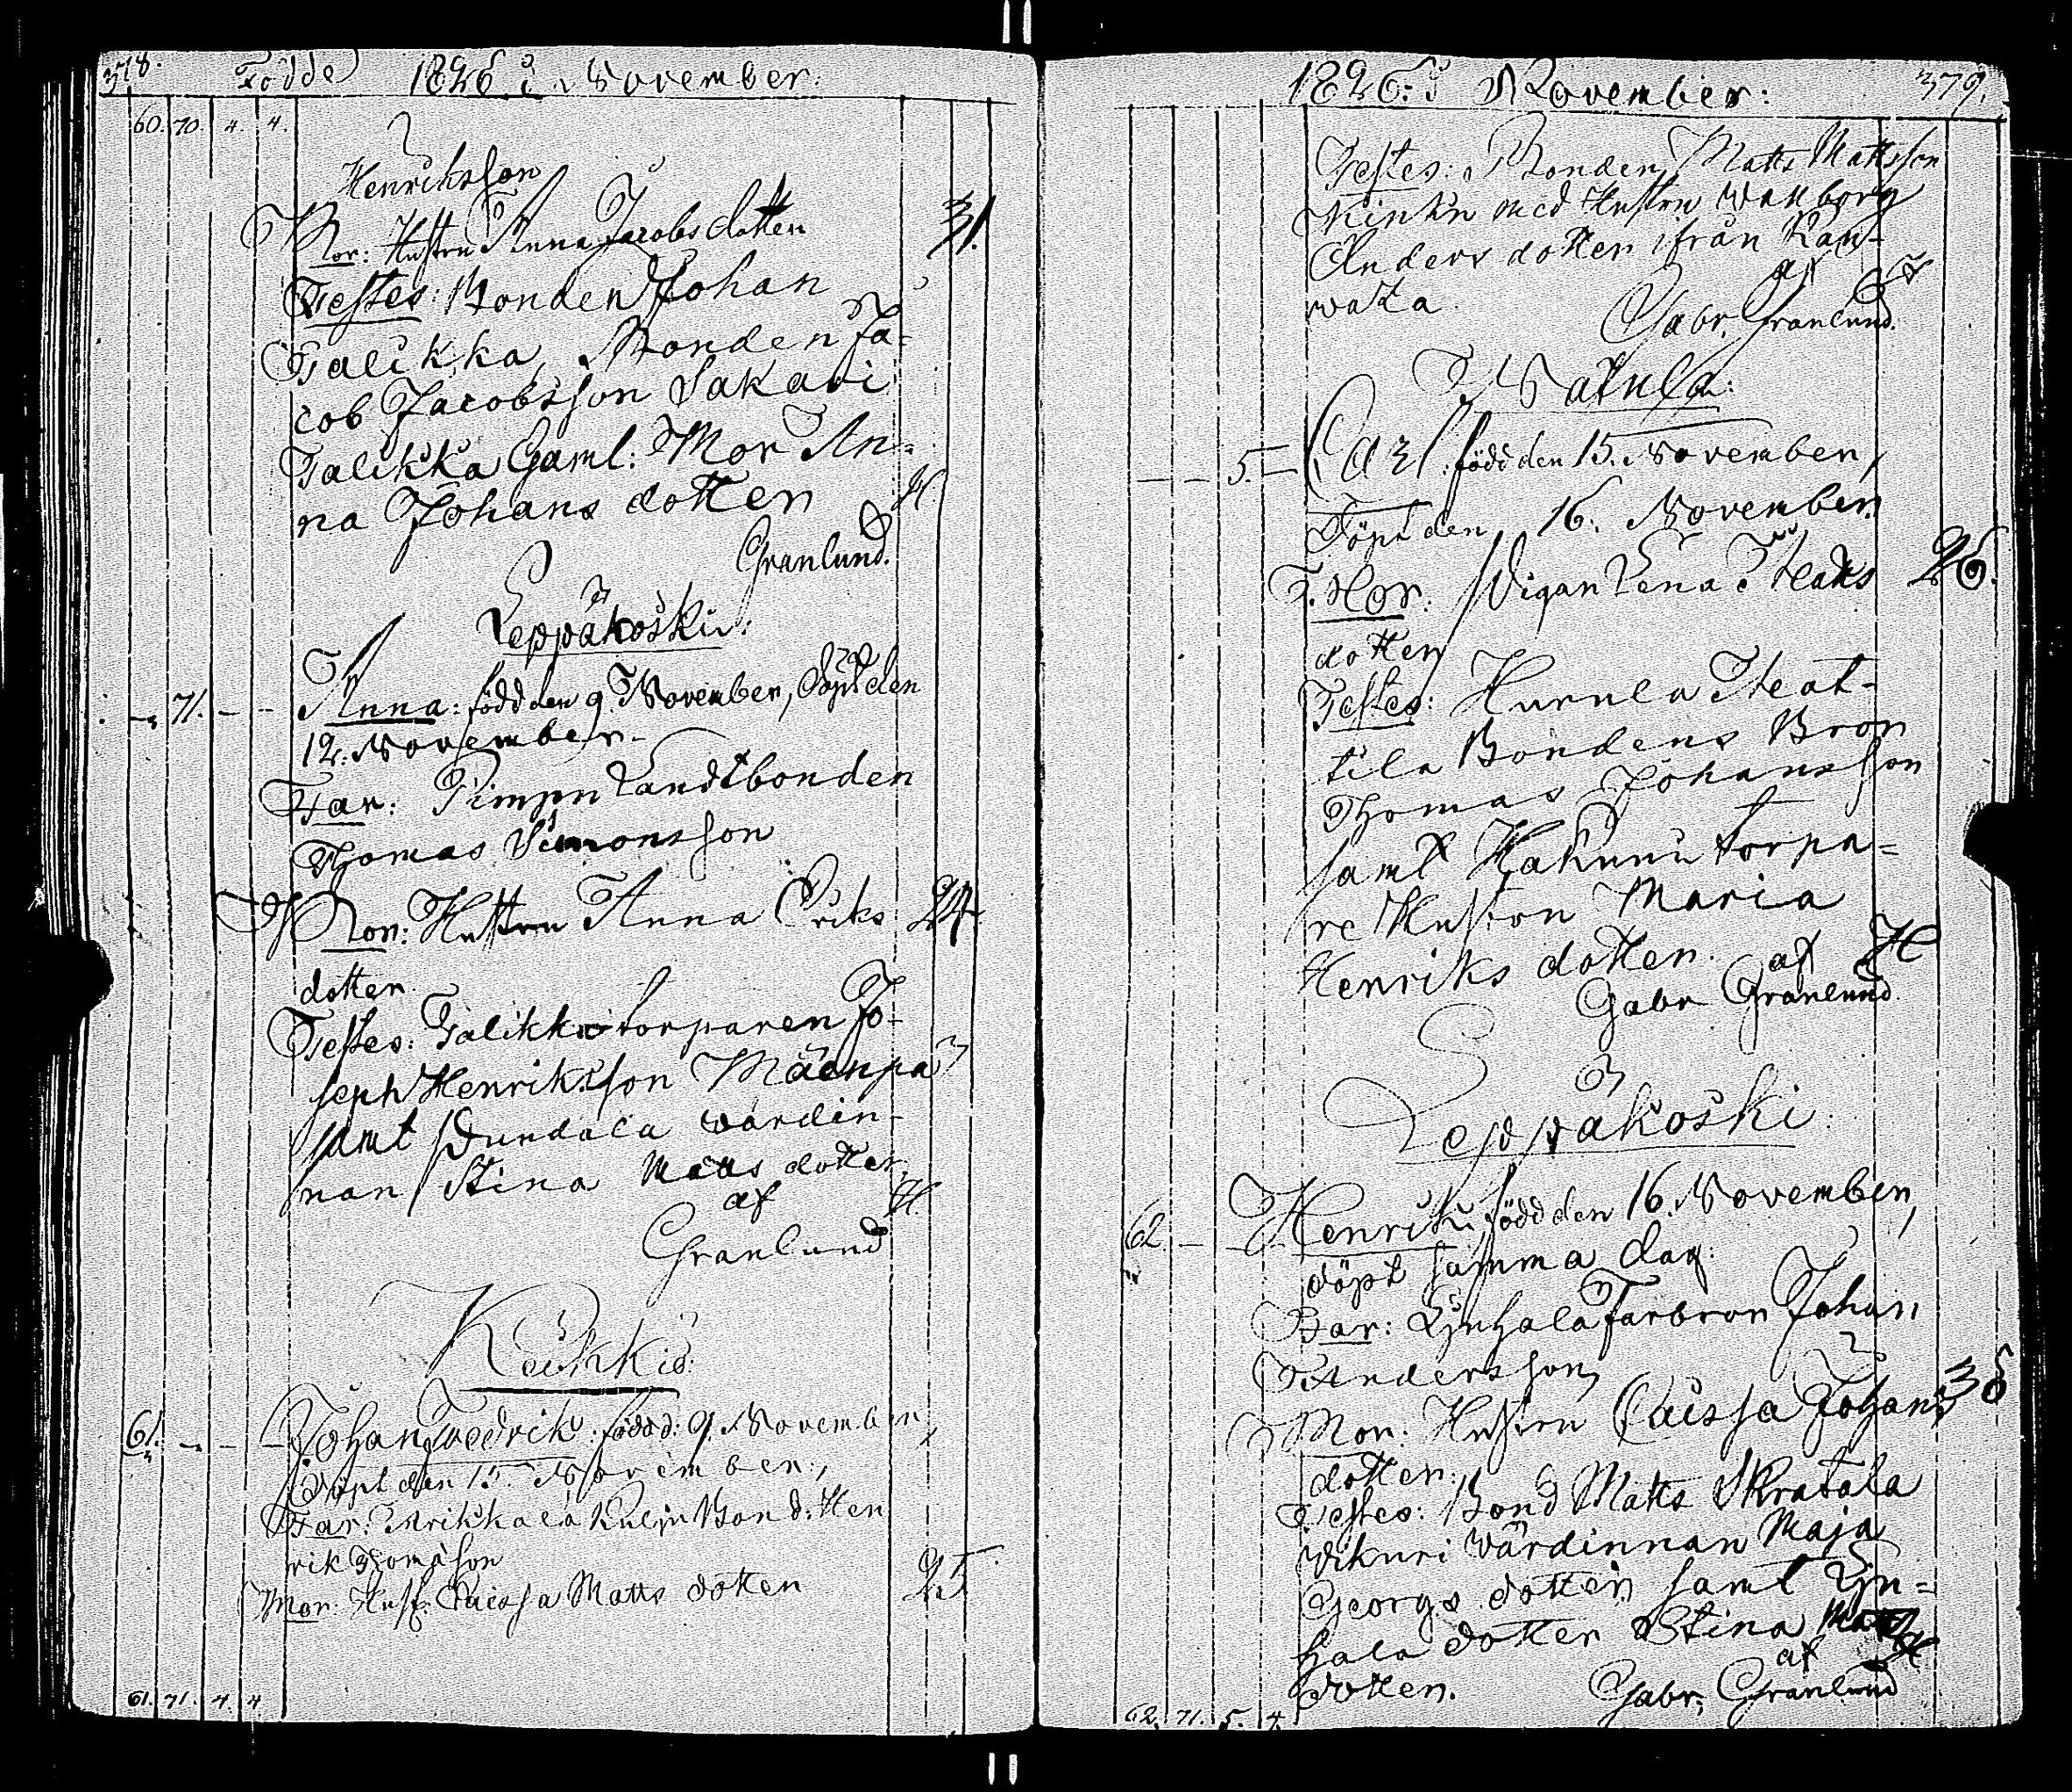 378.
Födde 1826 i November:
60. 70. 4. 4.
Henriksson
Mor: Hustru Anna Jacobs dotter 31.
Testes: Bonden Johan
Talikka, Bonden Ja-
cob Jacobsson Sakari
Talikka Gaml: Mor An-
na Johans dotter H.
Granlund.
Leppäkoski:
71. Anna: född den 9. November, döpt den
12. November.
Far: Pimpu Landtbonden
Thomas Simonsson
Mor: Hustru Anna Eriks 24.
dotter.
Testes: Talikka torparen Jo-
seph Henriksson Mäenpä
samt Sundala värdin-
nan Stina Matts dotter
af H.
Granlund
Keikkis:
61. Johan Fredrik: född: 9. November,
Döpt den 15. November.,
Far: Bond: Hen
rik Thomasson
Mor: Hust: Caissa Matts dotter 25.
61. 71. 4. 4
1826. i November:
379.
Testes: Bonden Matts Mattsson
med Hustru Wallborg
Anders dotter ifrån Kan-
wata.
af H
Gabr. Granlund.
Watula:
5. Carl: född den 15. November,
Döpt den 16. November.
F. Mor: Pigan Lena Isaks 26.
dotter
Testes: Hurula Heat-
tila Bondens Bror
Thomas Johansson
samt Hakuni torpa-
re Hustrun Maria
Henriks dotter. af H
Gabr Granlund.
Leppäkoski:
62. Henrik: född den 16. November,
döpt samma dag:
Far: Lynhala Farbron Johan
Andersson,
Mor: Hustru Caissa Johans 38
dotter.,
Testes: Bond Matts Skratala
Wikuri Värdinnan Maja
Georgs dotter, samt Lyn-
hala dotter Stina Matts
dotter. af H
Gabr: Granlund
62. 71. 5. 4.